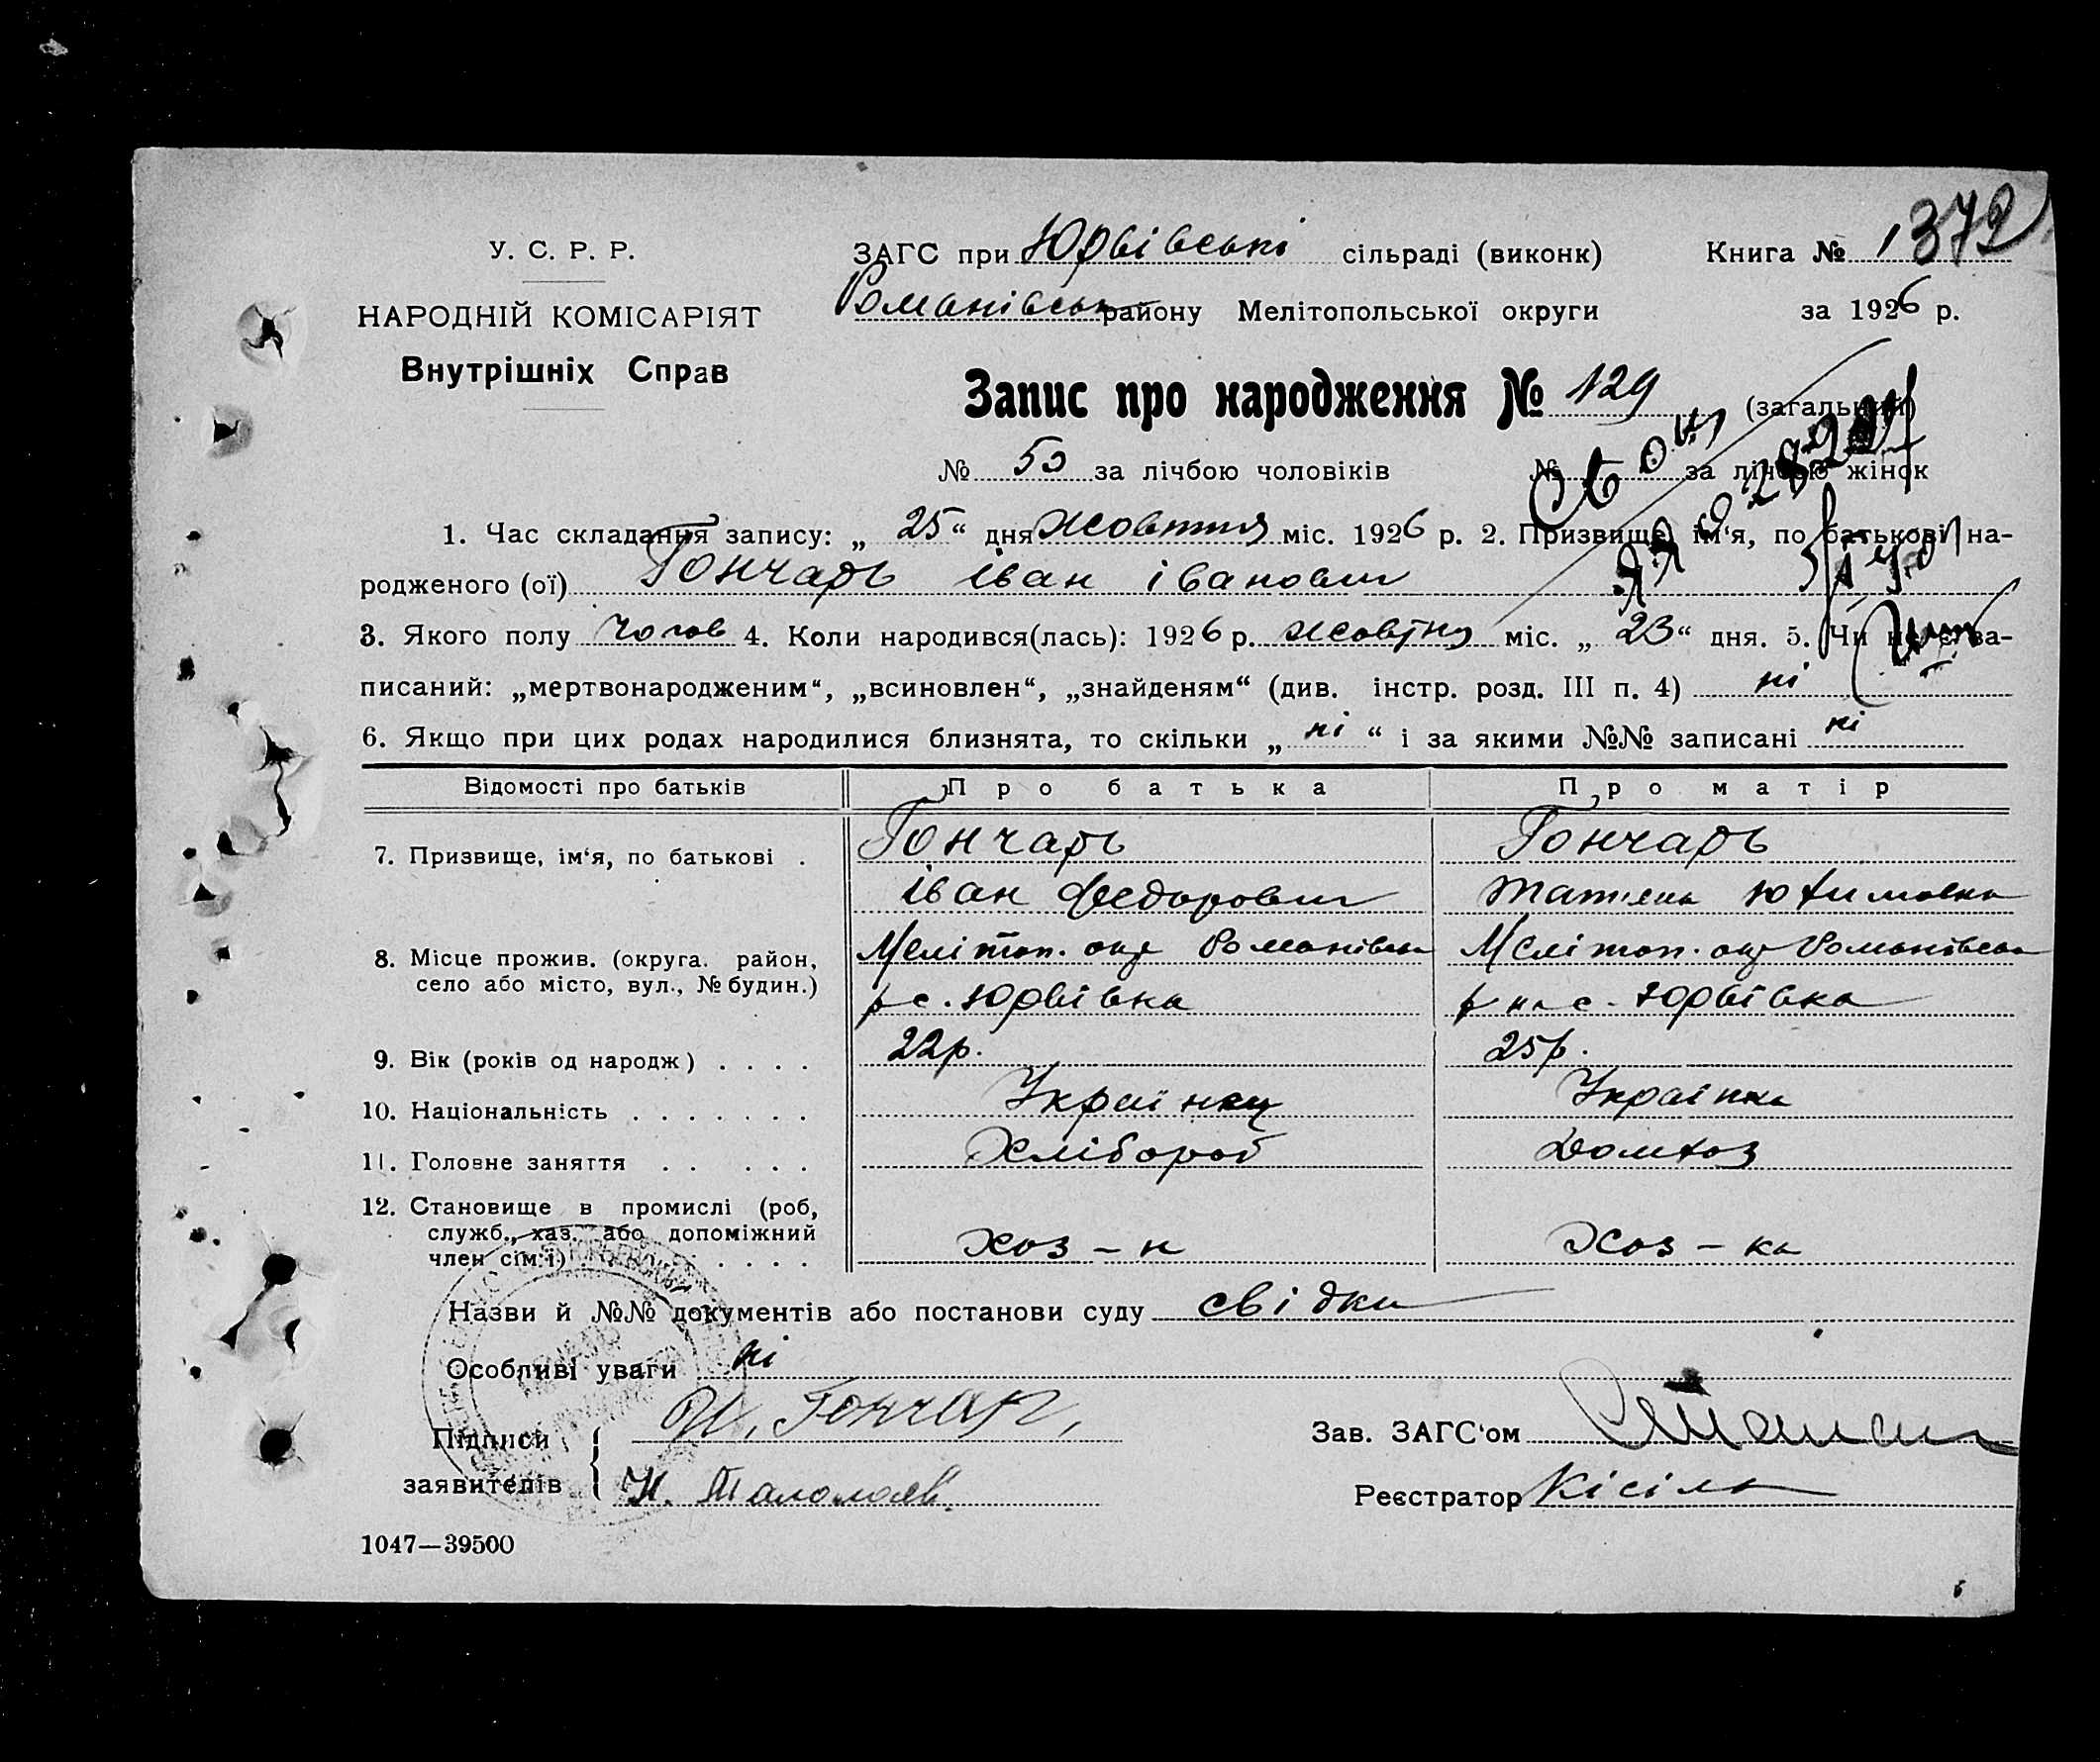 У. С. Р. Р.
НАРОДНІЙ КОМІСАРІЯТ
Внутрішніх Справ
ЗАГС при Юрвівські сільраді (виконк) Книга № 1372
Романівськ району Мелітопольської округи за 1926 р.
Запис про народження № 129 (загальний)
№ 50 за лічбою чоловіків № за лічбою жінок
1. Час складання запису: „ 25 “ дня жовтня міс. 1926 р. 2. Призвище, ім‘я, по батькові на-
родженого (ої) Гончарь Іван Іванович
3. Якого полу чолов 4. Коли народився(лась): 1926 р. жовтня міс. „ 23 “ дня. 5. Чи не є за-
писаний: „мертвонародженим“, „всиновлен“, „знайденям“ (див. інстр. розд. III п. 4) ні
6. Якщо при цих родах народилися близнята, то скільки „ ні “ і за якими №№ записані ні
Відомості про батьків Про батька Про матір
7. Призвище, ім‘я, по батькові . Гончарь Гончарь
Іван Федорович Татяна Юхимовна
8. Місце прожив. (округа. район, Меліто​п. окр Романівськ Мелітоп. окр Романівськ
село або місто, вул., № будин.) р с. Юрвівка р н с. Юрвівка
9. Вік (років од народж) . . . . 22р. 25р.
10. Національність . . . . . . . Українец Українка
11. Головне заняття . . . . . Хлібороб Домхоз
12. Становище в промислі (роб,
служб., хаз. або допоміжний
член сім‘ї) . . . . Хоз – н Хоз – ка
Назви й №№ документів або постанови суду свідки
Особливі уваги ні
Підписи И. Гончар, Зав. ЗАГС‘ом
заявителів Реєстратор Кісіль
1047—39500